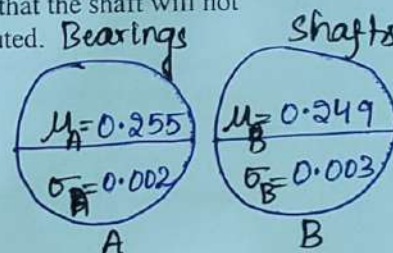 that the shaft will not
uted. Bearings Shafts
μ_A = 0.255 μ_B = 0.249
σ_A = 0.002 σ_B = 0.003
A B